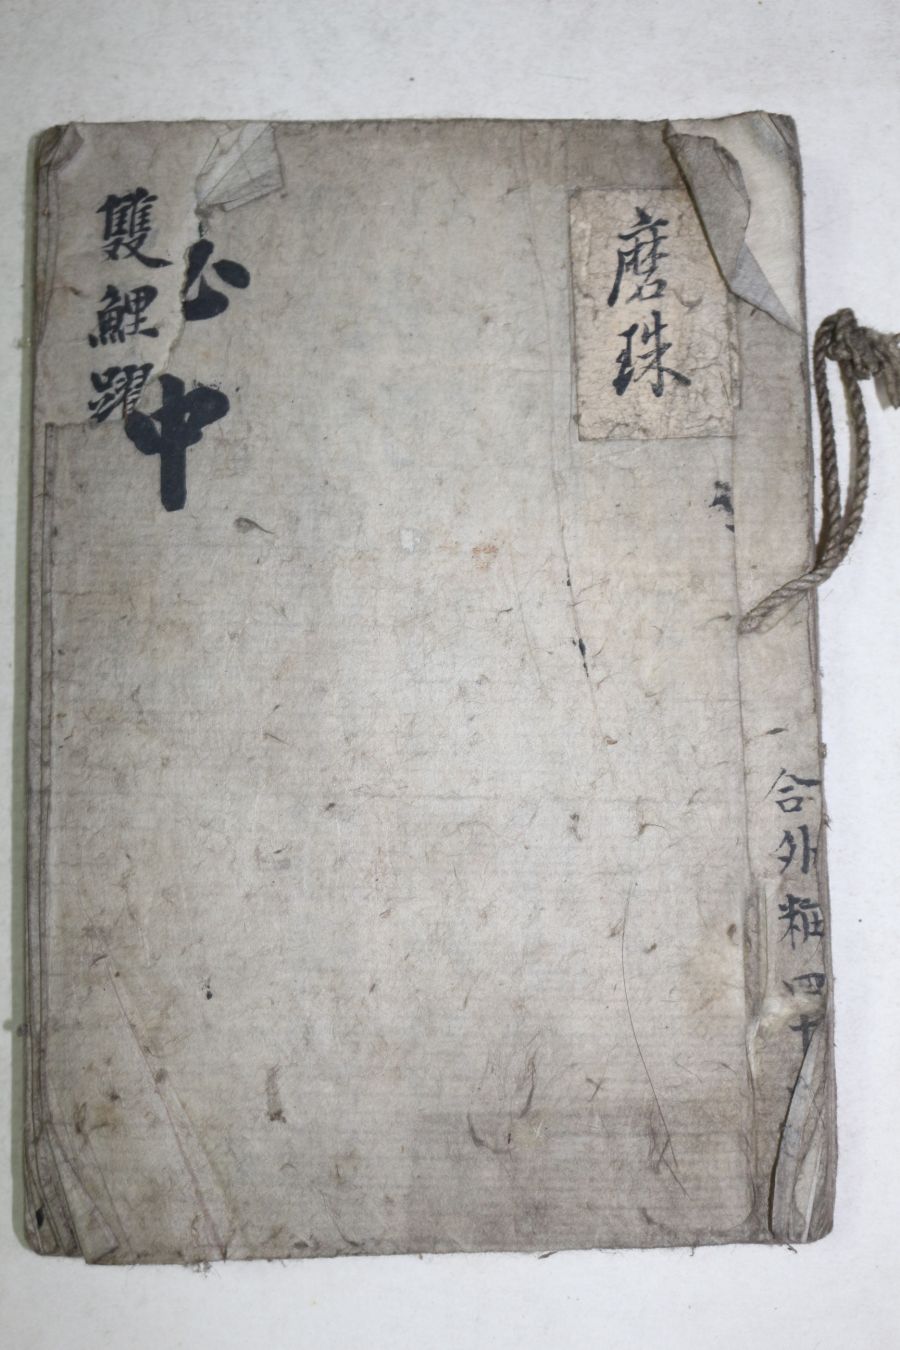 合外粧四十
磨珠
中
雙鯉躍